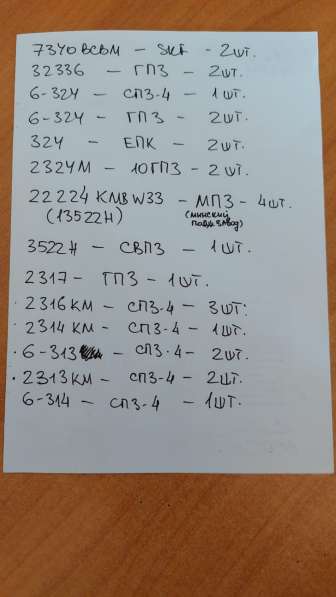 7340 BCBM - SKF - 2шт.
32336 - ГПЗ - 2шт.
6-324 - СПЗ-4 - 1шт.
6-324 - ГПЗ - 2шт.
324 - ЕПК - 2шт.
2324М - 10ГПЗ - 2шт.
22224 KMBW33 - МПЗ - 4шт.
(13522Н) (минский подш. завод)
3522Н - СВПЗ - 1шт.
2317 - ГПЗ - 1шт.
2316 КМ - СПЗ-4 - 3шт.
2314 КМ - СПЗ-4 - 1шт.
6-313 - СПЗ-4 - 2шт.
2313 КМ - СПЗ-4 - 2шт.
6-314 - СПЗ-4 - 1шт.